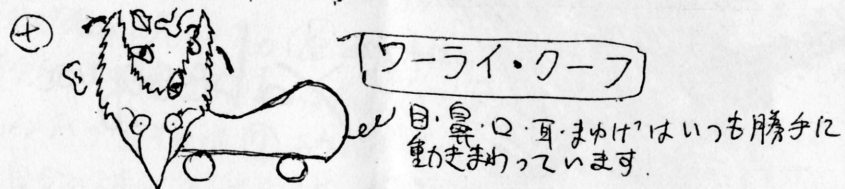 ワーライ・クーフ
目・鼻・口・耳・まゆげはいつも勝手に
動きまわっています.